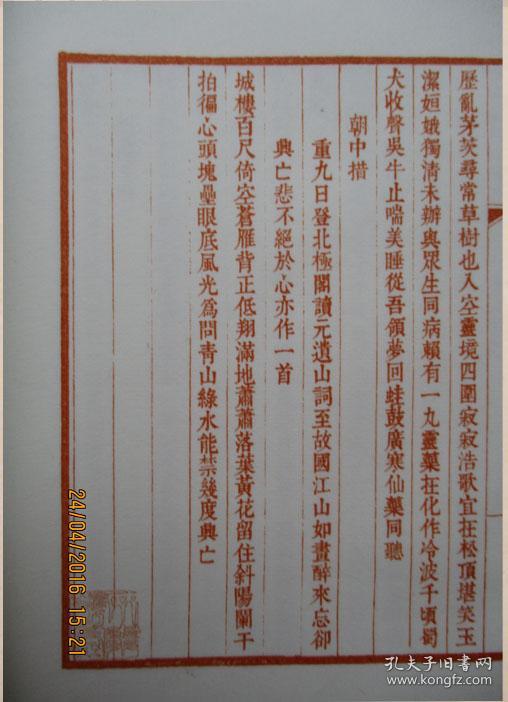 歷亂茅茨尋常草樹也入空靈境四圍寂寂浩歌宜在松頂堪笑玉
潔姮娥獨清未辦與眾生同病賴有一丸靈藥在化作冷波千頃蜀
犬收聲吳牛止喘美睡從吾領夢回蛙鼓廣寒仙藥同聽
朝中措
重九日登北極閣讀元遺山詞至故國江山如畫醉來忘卻
興亡悲不絕於心亦作一首
城樓百尺倚空蒼雁背正低翔滿地蕭蕭落葉黃花留住斜陽闌干
拍徧心頭塊壘眼底風光為問青山綠水能禁幾度興亡
24/04/2016 15:21
孔夫子旧书网
www.kongfz.com